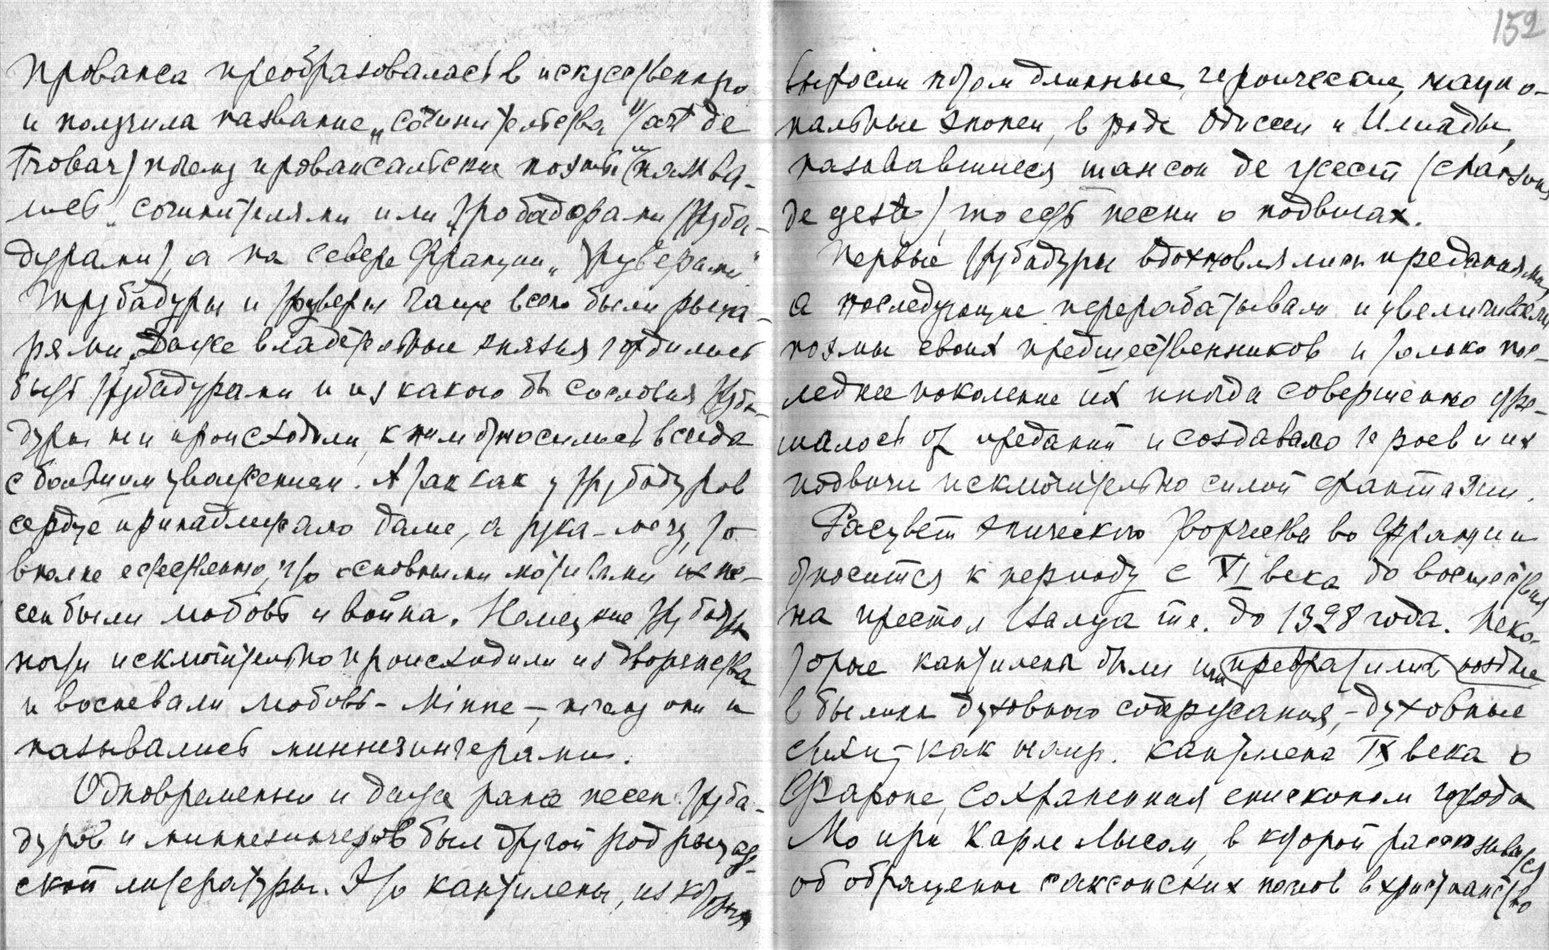 Прованса преобразовалась в искусственную
и получила название „сочинительства" (l'art de
trovar) почему провансальские поэты и назва-
лись сочинителями или тробадорами (труба-
дурами), а на севере Франции „труверами"
Трубадуры и труверы чаще всего были рыца-
рями. Даже владетельные князья гордились
быть трубадурами и из какого бы сословия труба-
дуры ни происходили, к ним относились всегда
с большим уважением. А так как у трубадуров
сердце принадлежало даме, а рука – мечу, то
вполне естественно, что основными мотивами их пе-
сен были любовь и война. Немецкие трубадуры
почти исключительно происходили из дворянства
и воспевали любовь – Minne –, почему они и
назывались миннезингерами.
Одновременно и даже ранее песен труба-
дуров и миннезингеров был другой род рыцар-
ской литературы. Это кантилены, из которых
152
выросли потом длинные, героические, нацио-
нальные эпопеи, в роде Одиссеи и Илиады,
называвшиеся шансон де жест (chansons
de geste), то есть песни о подвигах.
Первые трубадуры вдохновлялись преданиями,
а последующие перерабатывали и увеличивали
поэмы своих предшественников и только пос-
леднее поколение их иногда совершенно отре-
шалось от преданий и создавало героев и их
подвиги исключительно силой фантазии.
Расцвет эпического творчества во Франции
относится к периоду с XI века до восшествия
на престол Валуа т.е. до 1328 года. Неко-
торые кантилены были или превратились позднее
в былины духовного содержания, – духовные
стихи – как напр. кантилена IX века о
Фароне, сохраненная епископом города
Мо при Карле Лысом, в которой рассказывается
об обращении саксонских послов в христианство